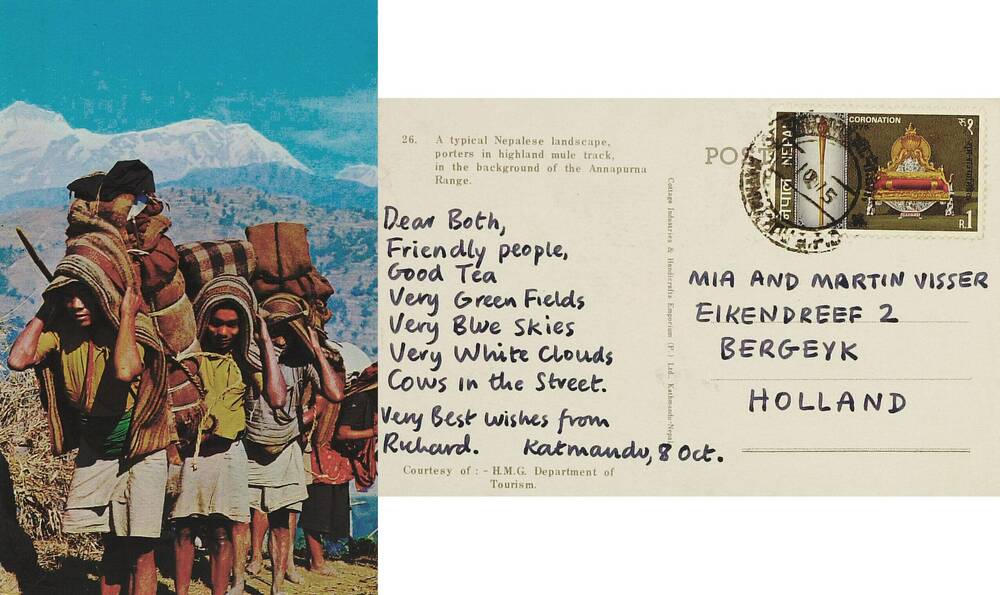 26. A typical Nepalese landscape,
porters in highland mule track,
in the background of the Annapurna
Range.
Dear Both,
Friendly people,
Good Tea
Very Green Fields
Very Blue Skies
Very White Clouds
Cows in the Street.
Very Best Wishes from
Richard. Katmandu, 8 Oct.
Courtesy of : - H.M.G. Department of
Tourism.
Cottage Industries & Handicrafts Emporium (P.) Ltd. Kathmandu-Nepal
POST
NEPAL
नेपाल
CORONATION
रु १
R.1
MIA AND MARTIN VISSER
EIKENDREEF 2
BERGEYK
HOLLAND